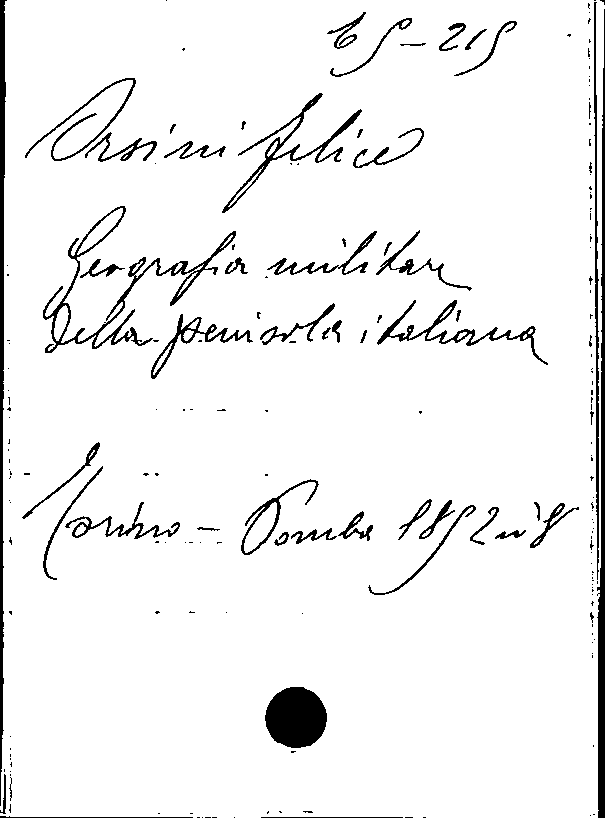 65-215
Orsini Felice
Geografia militare
della penisola italiana
Torino - Pomba 1852 in 8